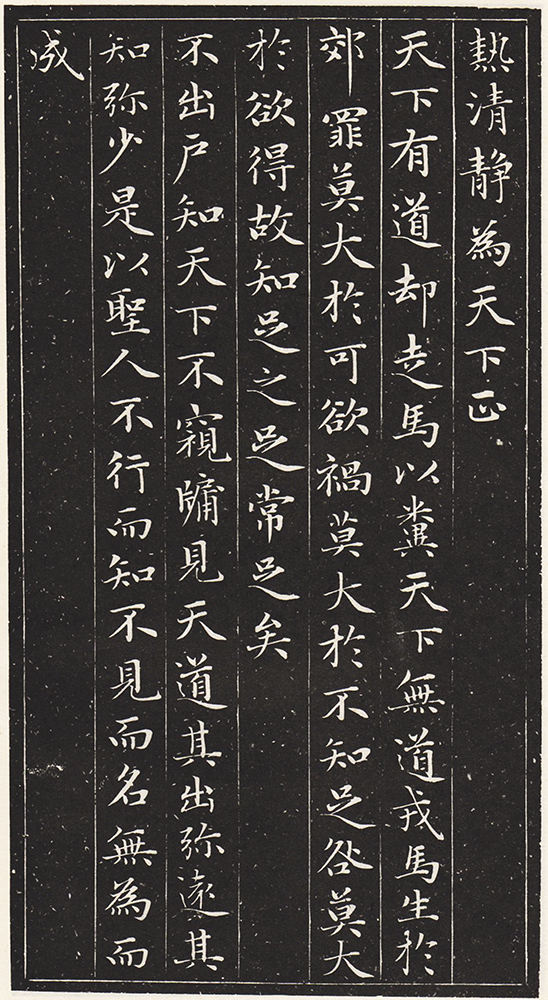 熱清靜為天下正
天下有道却走馬以糞天下無道戎馬生於
郊罪莫大於可欲禍莫大於不知足咎莫大
於欲得故知足之足常足矣
不出戶知天下不窺牖見天道其出弥遠其
知弥少是以聖人不行而知不見而名無為而
成